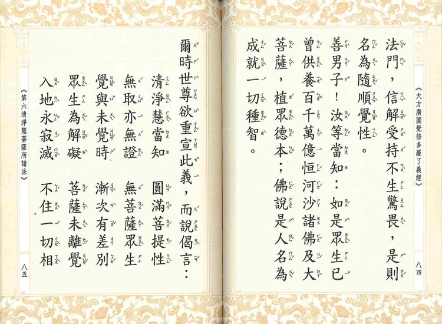 法門，信解受持不生驚畏，是則
名為隨順覺性。
善男子！汝等當知：如是眾生已
曾供養百千萬億恒河沙諸佛及大
菩薩，植眾德本；佛說是人名為
成就一切種智。
《大方廣圓覺修多羅了義經》
八四
爾時世尊欲重宣此義，而說偈言：
清淨慧當知　圓滿菩提性
無取亦無證　無菩薩眾生
覺與未覺時　漸次有差別
眾生為解礙　菩薩未離覺
入地永寂滅　不住一切相
《第六清淨慧菩薩所請法》
八五